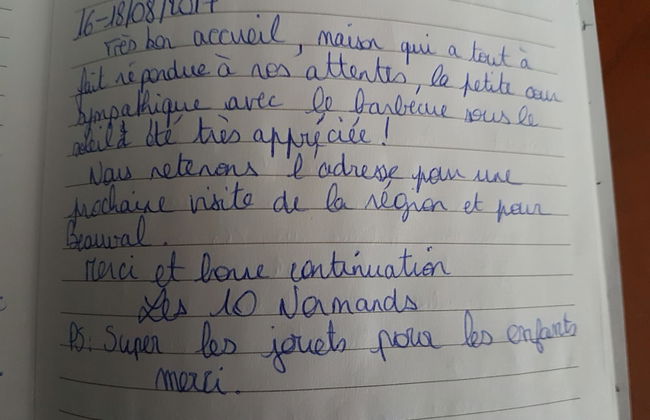 16-18/08/2017
Très bon accueil, maison qui a tout à
fait répondue à nos attentes, la petite cour
sympathique avec le barbecue sous le
soleil à été très appréciée!
Nous retenons l'adresse pour une
prochaine visite de la région et pour
Beauval.
Merci et bonne continuation
Les 10 Normands
PS: Super les jouets pour les enfants
merci.